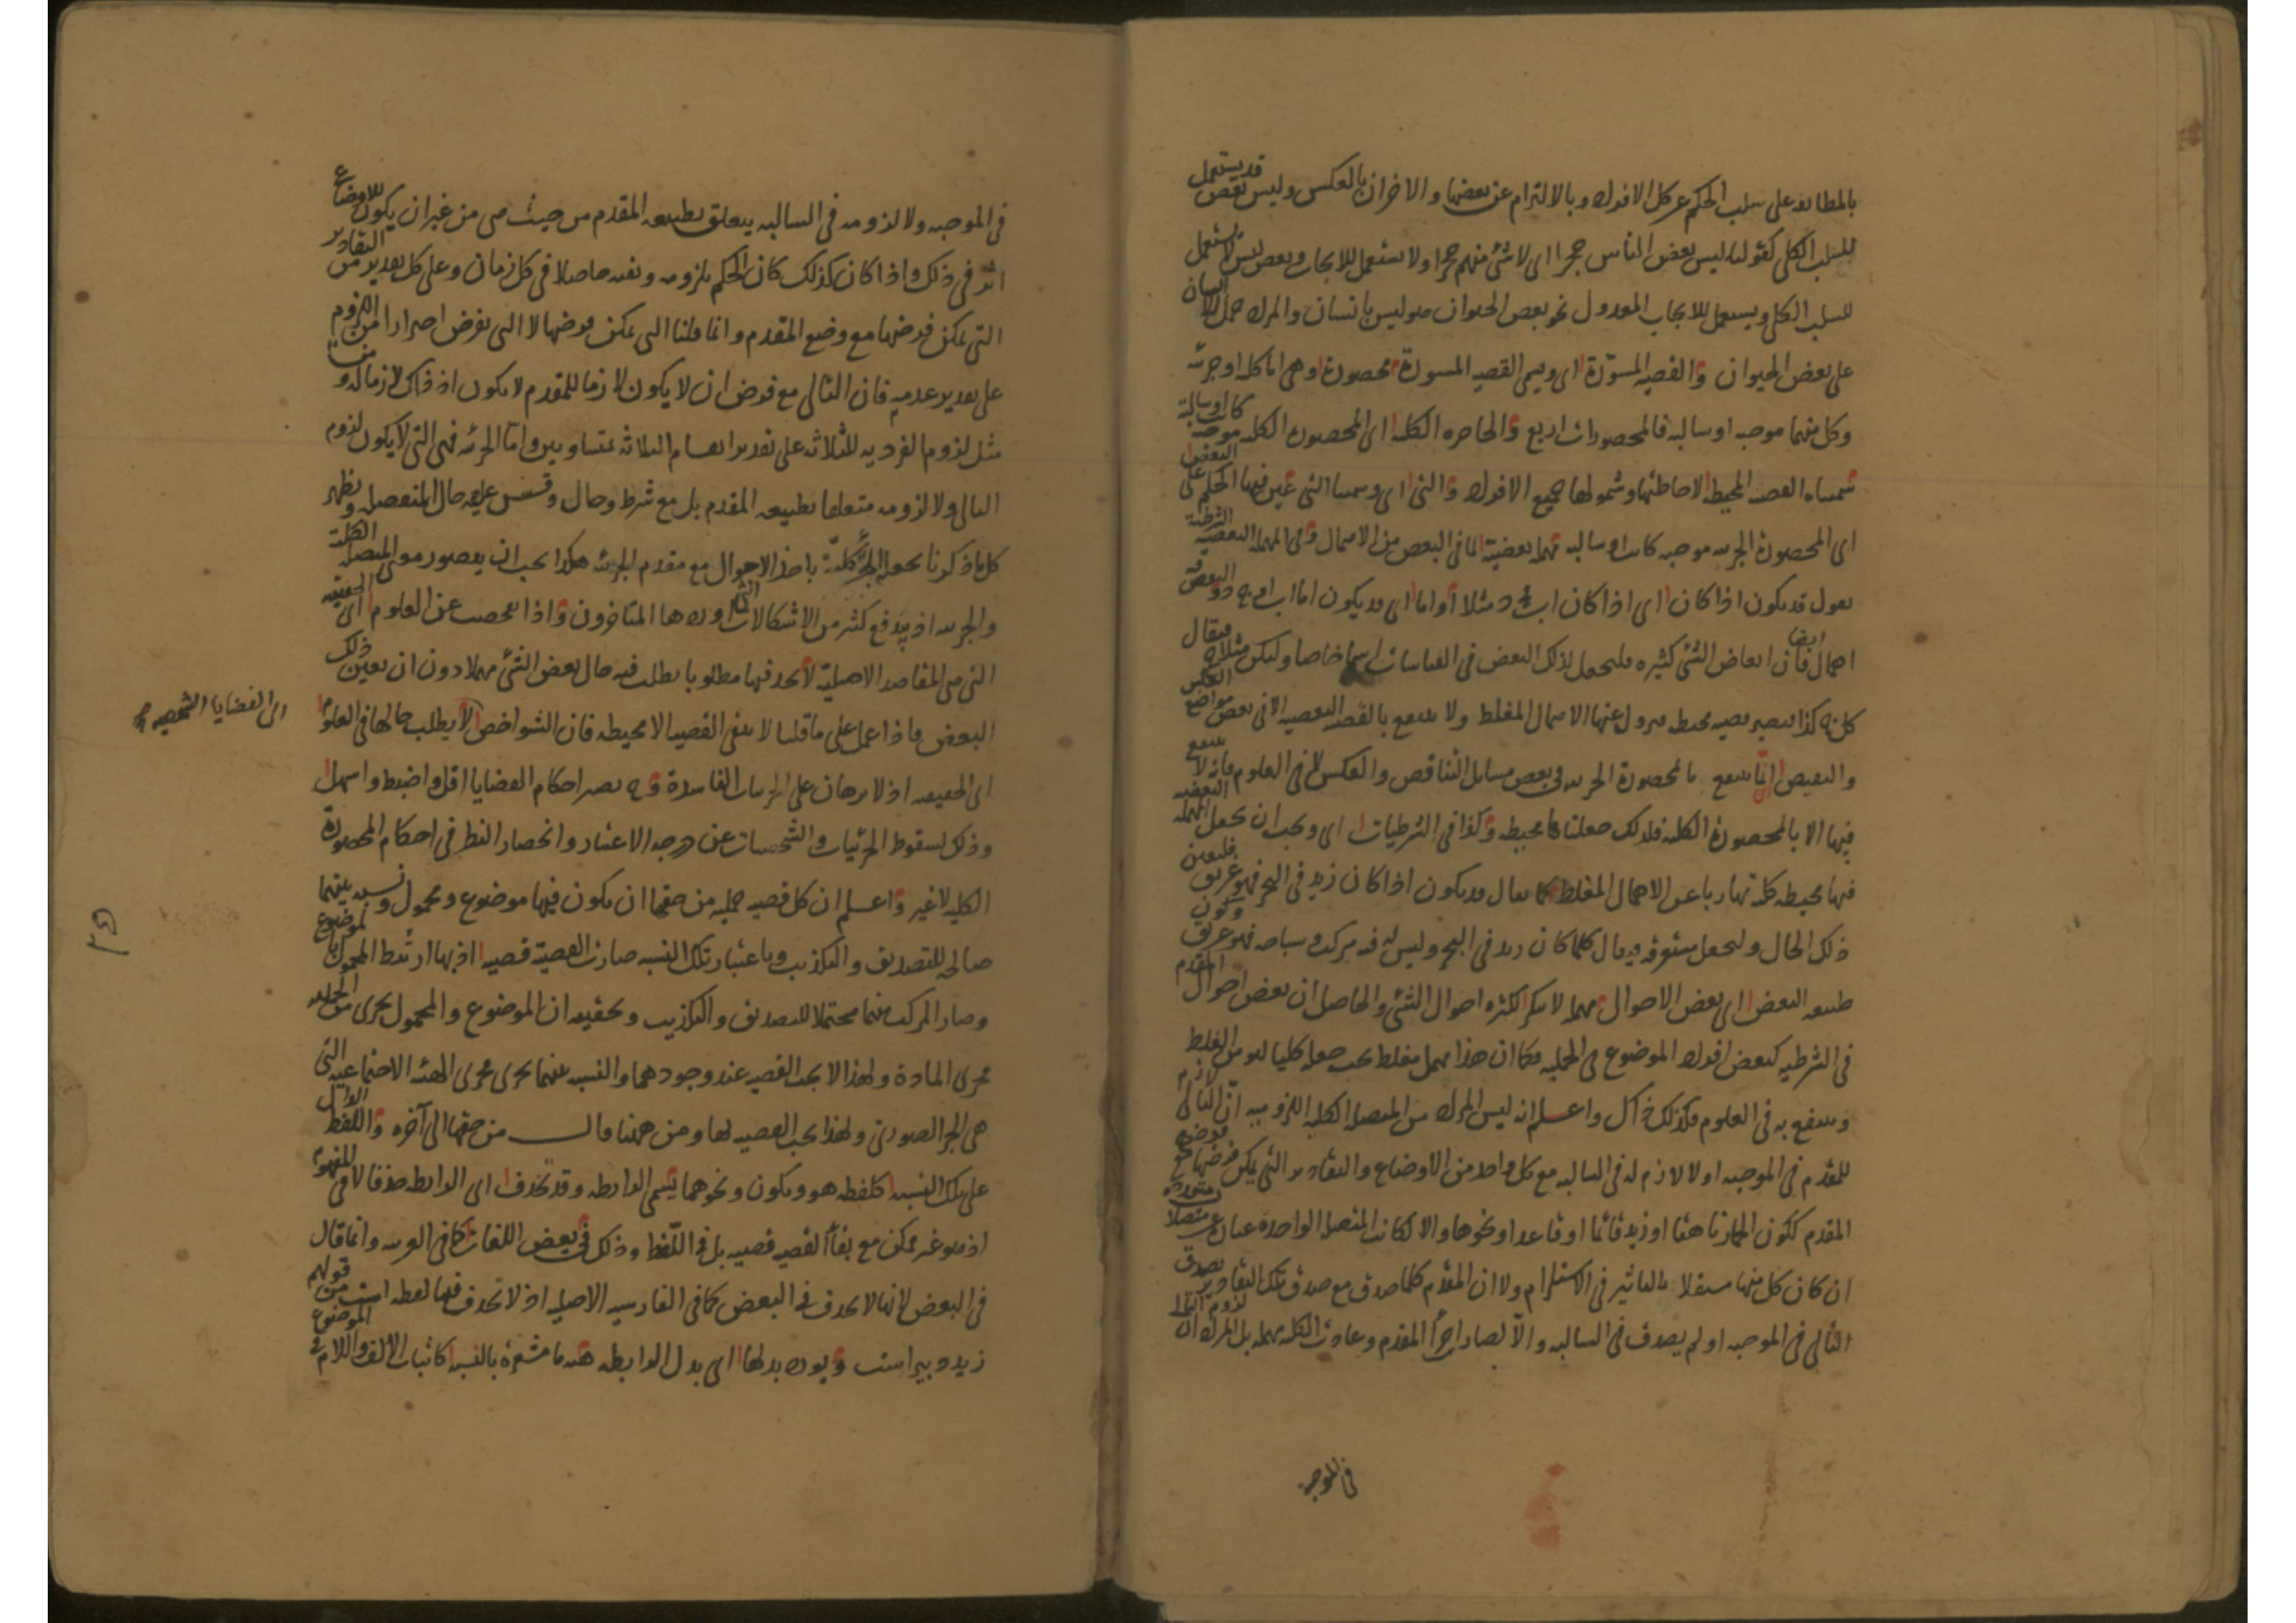 بالمطابقه على سلب الحكم عن كل الافراد وبالالتزام عن بعضها والاخران بالعكس وليس بعض قد يستعمل
للسلب الكلى كقولنا ليس بعض الناس حجرا اى لا شئ منهم حجرا ولا يستعمل للايجاب وبعض ليس لا يستعمل
للسلب الكلى ويستعمل للايجاب المعدول نحو بعض الحيوان هو ليس بانسان والمراد حمل اللاانسان
على بعض الحيوان والقضيه المسوّرة اى ويسمى القضيه المسورة محصورة وهى اما كليه او جزئيه
وكل منهما موجبه او سالبه فالمحصورات اربع والحاصره الكليه اى المحصورة الكليه موجبه كانت او سالبة
سميناه القضيه المحيطه لاحاطتها وشمولها جميع الافراد والتى اى وسمينا التى عين فيها الحكم على البعض
اى المحصورة الجزئيه موجبه كانت او سالبه مهملة بعضية لما فى البعض من الاهمال وفى المهملة البعضيه الشرطية
نقول قد يكون اذا كان اى اذا كان اب فج د مثلا او اما اى قد يكون اما اب او ج د والبعض فيه
اهمال ايضا فان ابعاض الشئ كثيره فليجعل لذلك البعض فى القياسات اسما خاصا وليكن مثلا ج فيقال
كل ج كذا فيصير قضيه محيطه فيزول عنها الاهمال المغلط ولا ينتفع بالقضيه البعضيه الا فى بعض مواضع العكس
والنقيض اى انما ينتفع بالمحصورة الجزئيه فى بعض مسائل التناقض والعكس لا فى العلوم فانه لا ينتفع
فيها الا بالمحصورة الكليه فلذلك جعلناها محيطه وكذا فى الشرطيات اى ويجب ان يجعل المهمله البعضيه
فيها محيطه كليه تهاربا عن الاهمال المغلط كما يقال قد يكون اذا كان زيد فى البحر فهو غريق فليعين
ذلك الحال وليجعل مستغرقه فيقال كلما كان زيد فى البحر وليس له فيه مركب وسباحه فهو غريق وكون
طبيعه البعض اى بعض الاحوال مهمله لا ينكر لكثره احوال الشئ والحاصل ان بعض احوال المقدم
فى الشرطيه كبعض افراد الموضوع فى الحمليه فكما ان هذا مهمل مغلط يجب جعله كليا ليؤمن الغلط
وينتفع به فى العلوم فكذلك ذاك واعلم انه ليس المراد من المتصله الكليه اللزوميه انّ التالى لازم
للمقدم فى الموجبه او لا لازم له فى السالبه مع كل واحد من الاوضاع والتقادير التى يمكن فرضها مع فرض
المقدم ككون الحمار ناهقا او زيد قائما او قاعدا ونحوها والا لكانت المتصله الواحده عبارة عن متصلات متعدده
ان كان كل منها مستقلا بالتاثير فى الاستلزام ولا ان المقدم كلما صدق مع صدق تلك التقادير يصدق
التالى فى الموجبه او لم يصدق فى السالبه والّا لصار اجزأ المقدم وعادت الكليه مهمله بل المراد ان لزوم التالى
فى الموجبه
فى الموجبه ولا لزومه فى السالبه يتعلق بطبيعه المقدم من حيث هى من غير ان يكون للاوضاع
اثر فى ذلك واذا كان كذلك كان الحكم بلزومه ونفيه حاصلا فى كل زمان وعلى كل تقدير من التقادير
التى يمكن فرضها مع وضع المقدم وانما قلنا التى يمكن فرضها لا التى يفرض احترازا من اللزوم
على تقدير عدميه فان التالى مع فرض ان لا يكون لازما للمقدم لا يكون اذ ذاك لازما له و
مثل لزوم الفرديه للثلاثه على تقدير انقسام الثلاثه بمتساويين واما الجزئيه فهى التى لا يكون لزوم
التالى ولا لزومه متعلقا بطبيعه المقدم بل مع شرط وحال وقس عليه حال المنفصله ونظهر
كل ما ذكرنا بجعل الجزئيه كليّة باخذ الاحوال مع مقدم الجزئيه هكذا يجب ان يتصور معنى المتصله الكلية
والجزئيه اذ يندفع كثير من الاشكالات التى اوردها المتاخرون واذا تفحصت عن العلوم اى الحقيقيه
التى هى المقاصد الاصلية لا تجد فيها مطلوبا يطلب فيه حال بعض الشئ مهملا دون ان يعين ذلك
البعض فاذا عمل على ما قلنا لا يبقى القضيه الا محيطه فان الشواخص لا يطلب حالها فى العلوم
الى القضايا الشخصيه صح
اى الحقيقيه اذ لا برهان على الجزئيات الفاسدة وح يصير احكام القضايا اقل واضبط واسهل
وذلك لسقوط الجزئيات والشخصيات عن درجه الاعتبار وانحصار النظر فى احكام المحصورة
الكليه لا غير واعلم ان كل قضيه حمليه من حقها ان يكون فيها موضوع ومحمول ونسبه بينهما
صالحه للتصديق والتكذيب وباعتبار تلك النسبه صارت القضيّة قضيه اذ بها ارتبط المحمول بالموضوع
وصار المركب منهما محتملا للتصديق والتكذيب وتحقيقه ان الموضوع والمحمول يجرى من الحمليه
مجرى المادة ولهذا لا يجب القضيه عند وجودهما والنسبه بينهما يجرى مجرى الهيئه الاجتماعيه التى
هى الجزء الصورى ولهذا يجب القضيه لها ومن ههنا قال من حقها الى آخره واللفظ الدال
على تلك النسبه كلفظه هو ويكون ونحوهما يسمى الرابطه وقد تحذف اى الرابطه حذفا لا فى المفهوم
اذ هو غير ممكن مع بقأ القضيه قضيه بل فى اللفظ وذلك فى بعض اللغات كما فى العربيه وانما قال
فى البعض لانها لا تحذف فى البعض كما فى الفارسيه الاصليه اذ لا تحذف فيها لفظه است من قولهم
زيد دبير است ويورد بدلها اى بدل الرابطه هيئه ما مشعرة بالنسبه كاثبات الالف واللام فى الموضوع